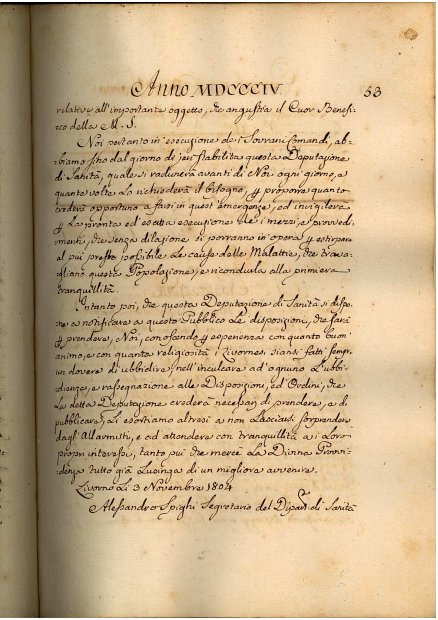 Anno MDCCCIV. 53
relative all'importante oggetto, che angustia il Cuor Benefi-
co della M. S.
Noi pertanto in esecuzione de i Sovrani Comandi, ab-
biamo fino dal giorno di jeri stabilita questa Deputazione
di Sanità, quale si radunerà avanti di Noi ogni giorno, e
quanto volte lo richiederà il bisogno, p proporre quanto
crederà opportuno a farsi in quest'emergenze, ed invigilerà
p la pronta ed esatta esecuzione de i mezzi, e provvedi-
menti, che senza dilazione si porranno in opera p estirpare
al più presto possibile le cause delle Malattie, che trava-
gliano questa Popolazione, e ricondurla alla primiera
tranquillità.
Intanto poi, che questa Deputazione di Sanità si dispo-
ne a notificare a questo Pubblico le disposizioni, che sarà
p prendere, Noi, conoscendo p esperienza con quanto buon'
animo, e con quanta religiosità i Livornesi siansi fatti sempre
un dovere di ubbidire, nell'inculcare ad ognuno l'ubbi-
dienza, e rassegnazione alle Disposizioni, ed Ordini, che
la detta Deputazione crederà necessari di prendere, e di
pubblicare, Li esortiamo altresì a non lasciarsi sorprendere
dagl'Allarmisti, e ad attendere con tranquillità a i loro
propri interessi, tanto più che mercè La Divina Provvi-
denza tutto già Lusinga di un migliore avvenire.
Livorno Li 3 Novembre 1804
Alessandro Spighi Segretario del Dipart. di Sanità